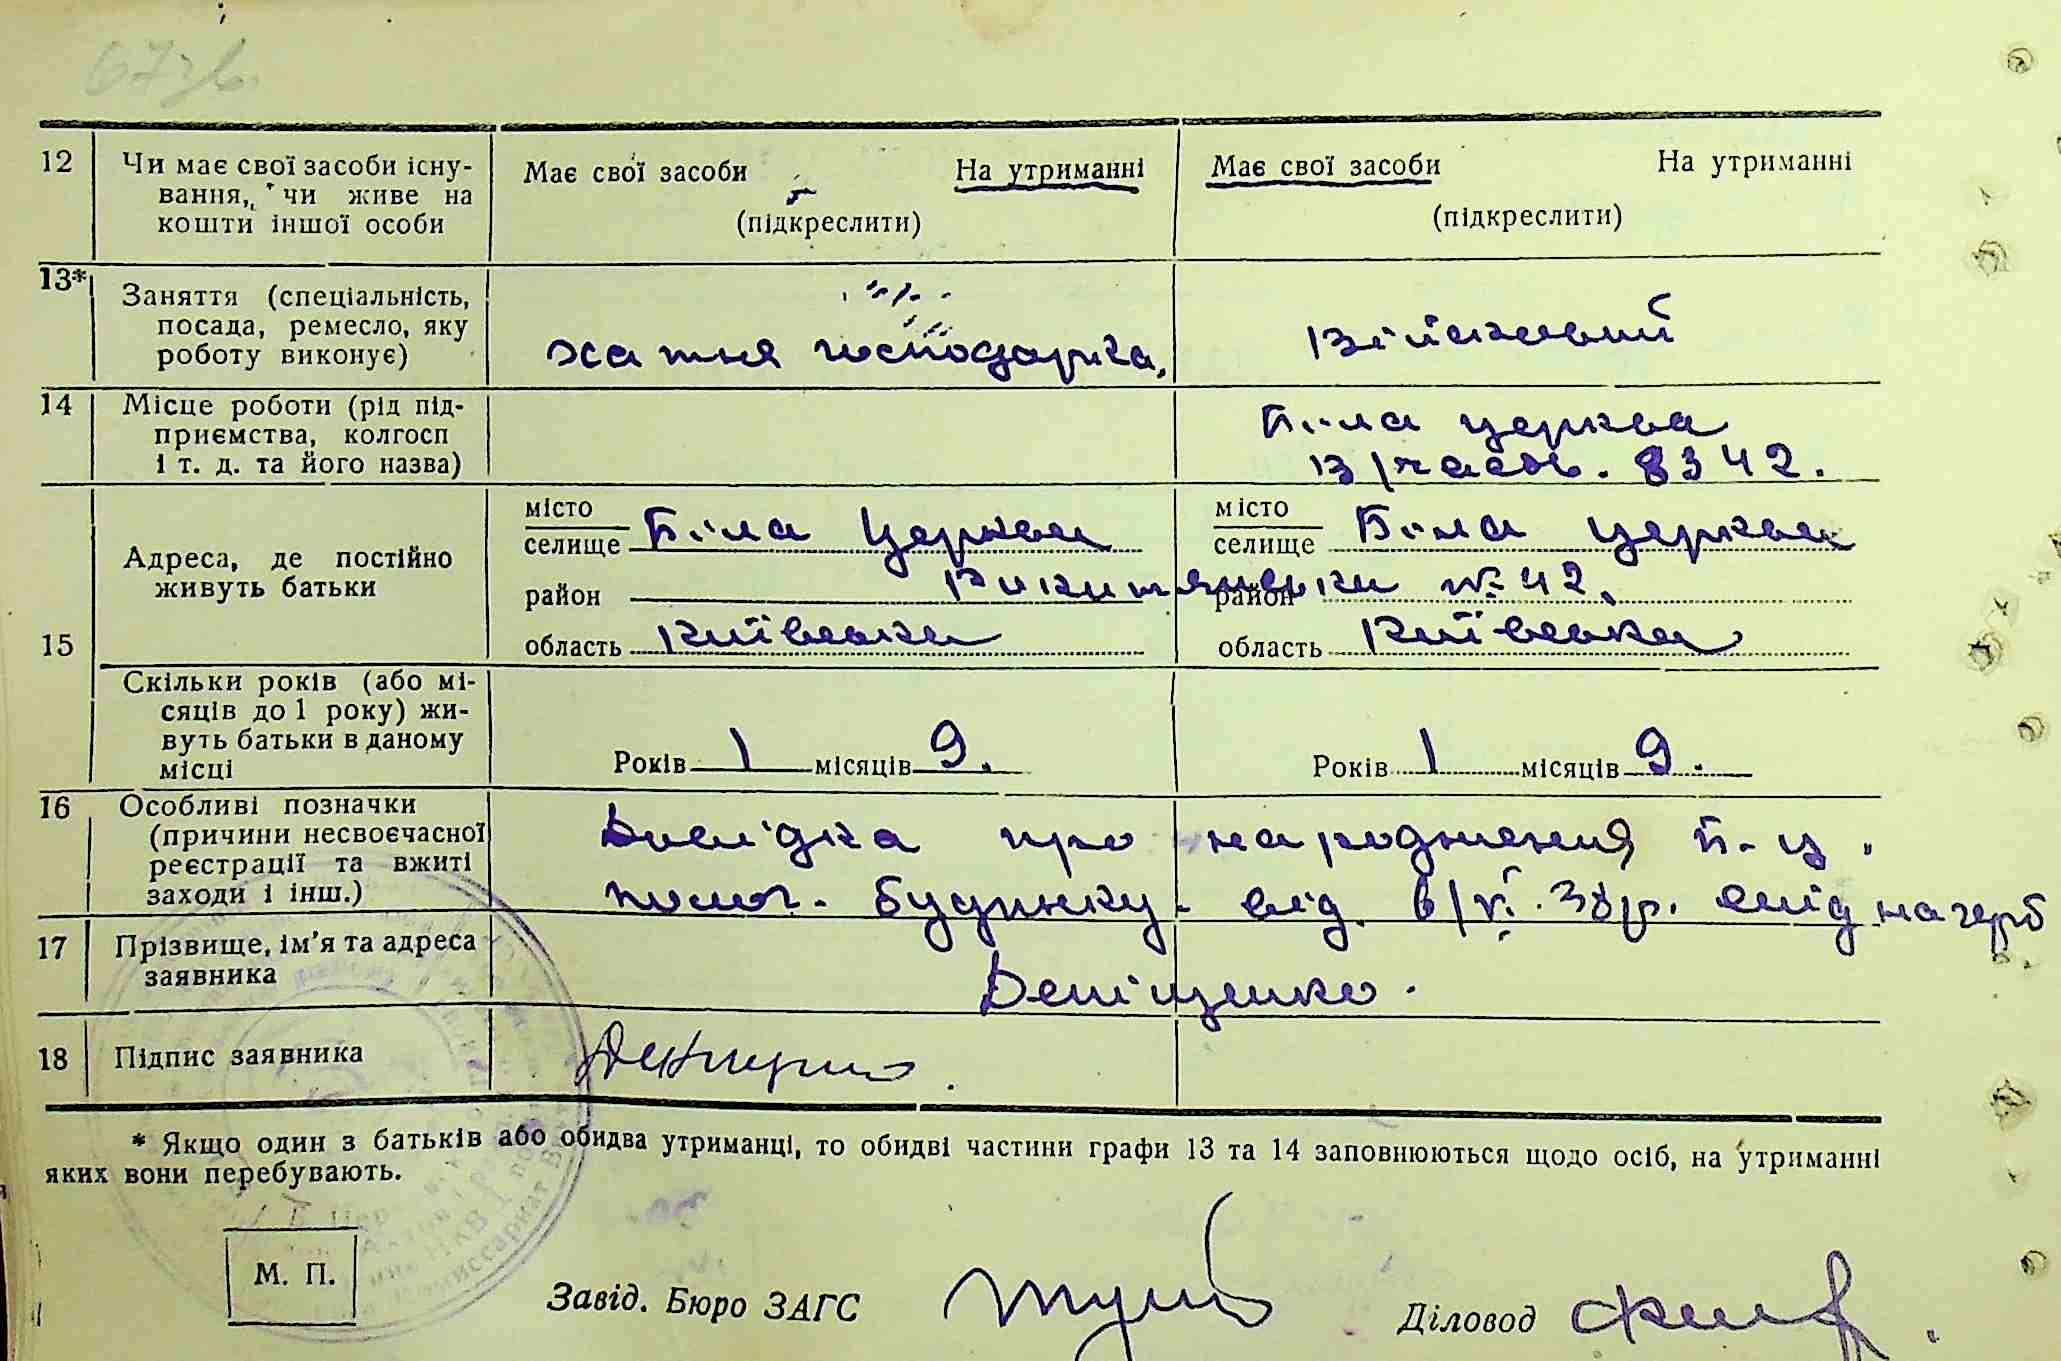 12 Чи має свої засоби існу- Має свої засоби На утриманні Має свої засоби На утриманні
вання, чи живе на
кошти іншої особи (підкреслити) (підкреслити)
13* Заняття (спеціальність,
посада, ремесло, яку
роботу виконує) хатня господарка. Військовий
14 Місце роботи (рід під- Біла церква
приємства, колгосп
і т. д. та його назва) в/часть. 8342.
місто місто
селище Біла Церква селище Біла церква
Адреса, де постійно
живуть батьки
район район № 42.
15 область Київська область Київська
Скільки років (або мі-
сяців до 1 року) жи-
вуть батьки в даному
місці Років 1 місяців 9. Років 1 місяців 9.
16 Особливі позначки
(причини несвоєчасної Довідка про народження Б-Ц.
реєстрації та вжиті
заходи і інш.) полог. будинку від 6/VI. 38р.
17 Прізвище, ім'я та адреса
заявника
18 Підпис заявника
* Якщо один з батьків або обидва утриманці, то обидві частини графи 13 та 14 заповнюються щодо осіб, на утриманні
яких вони перебувають.
М. П.
Завід. Бюро ЗАГС Діловод